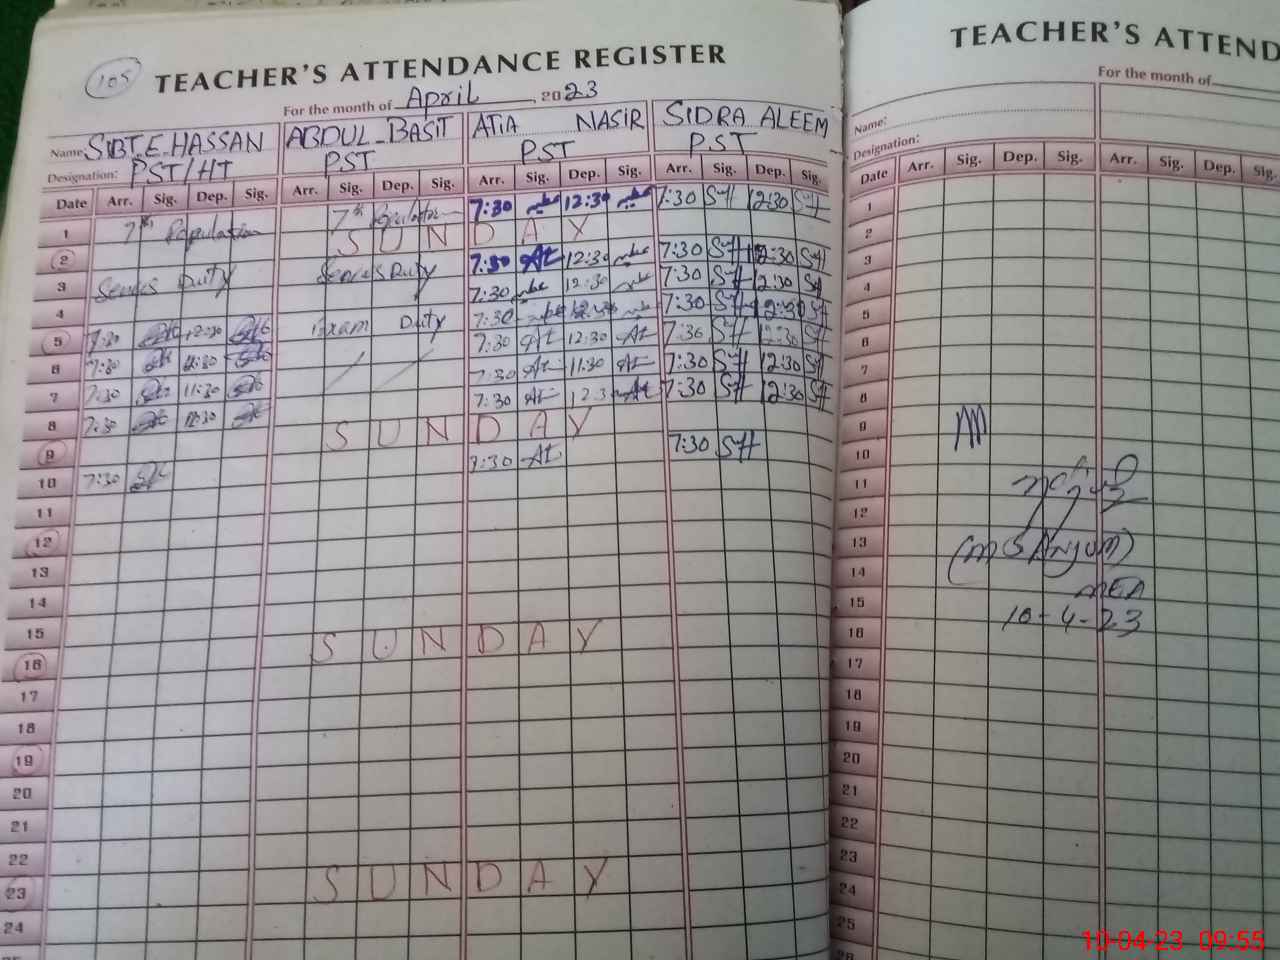 105
TEACHER'S ATTENDANCE REGISTER
For the month of April, 2023
Name: SIBT.E.HASSAN ABDUL-BASIT ATIA NASIR SIDRA ALEEM
Designation: PST/HT PST PST PST
Date Arr. Sig. Dep. Sig. Arr. Sig. Dep. Sig. Arr. Sig. Dep. Sig. Arr. Sig. Dep. Sig.
1 7th Population 7th Population 7:30 12:30 7:30 Sff 12:30 Sff
2 SUNDAY
3 Duty Duty 7:30 At 12:30 7:30 Sff 12:30 Sff
4 7:30 12:30 7:30 Sff 12:30 Sff
5 7:30 12:30 Exam Duty 7:30 7:30 Sff 12:30 Sff
6 7:30 7:30 At 12:30 At 7:30 Sff 12:30 Sff
7 7:30 11:30 7:30 At 11:30 At 7:30 Sff 12:30 Sff
8 7:30 7:30 At At 7:30 Sff 12:30 Sff
9 SUNDAY
10 7:30 7:30 At 7:30 Sff
11
12
13
14
15
16 SUNDAY
17
18
19
20
21
22
23 SUNDAY
24
TEACHER'S ATTEND
For the month of
Name:
Designation:
Date Arr. Sig. Dep. Sig. Arr. Sig. Dep. Sig.
1
2
3
4
5
6
7
8
9
10
11
12
13 (M S ANJUM)
14
15 MEA
16 10-4-23
17
18
19
20
21
22
23
24
25
10-04-23 09:55